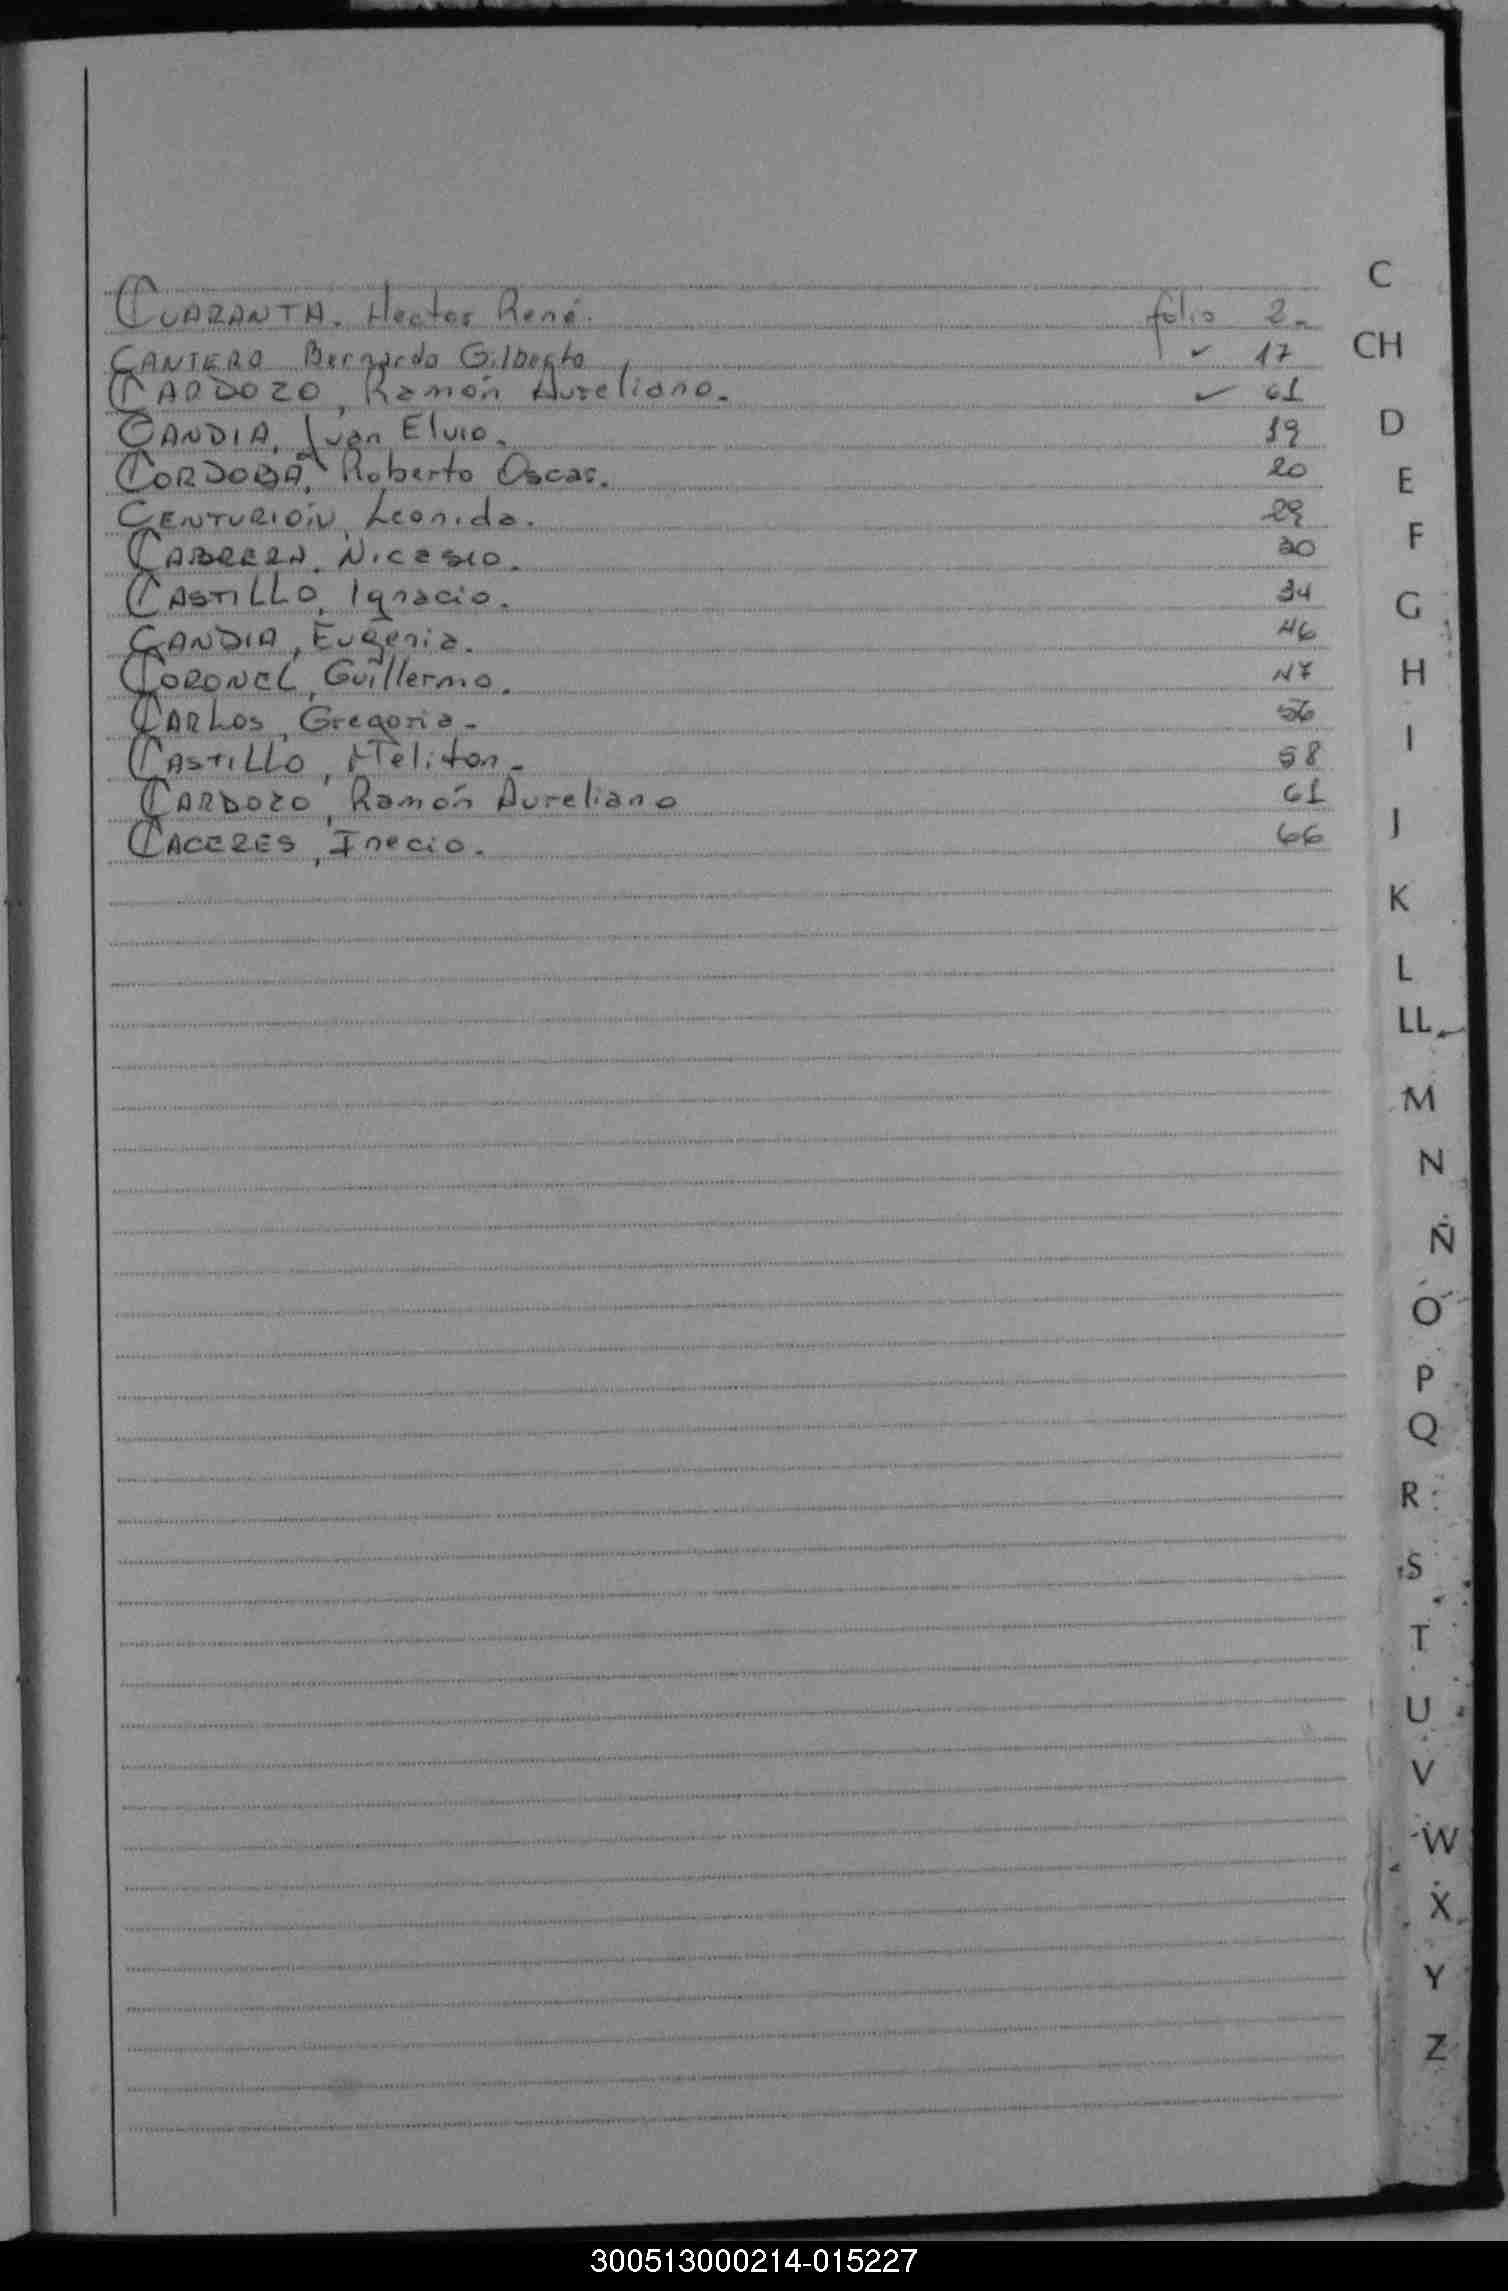 C
CUARANTA. Hector René. folio 2.
CH
CANTERO Bernardo Gilberto ✓ 17
CARDOZO, Ramón Aureliano. ✓ 61
D
CANDIA, Juan Elvio. 19
CORDOBA, Roberto Oscar. 20
E
CENTURIÓN, Leonida. 29
F
CABRERA, Nicasio. 30
CASTILLO, Ignacio. 34
G
CANDIA, Eugenia. 46
H
CORONEL, Guillermo. 47
CARLOS, Gregoria. 56
I
CASTILLO, Meliton. 58
CARDOZO, Ramón Aureliano 61
J
CACERES, Inecio. 66
K
L
LL
M
N
Ñ
O
P
Q
R
S
T
U
V
W
X
Y
Z
300513000214-015227